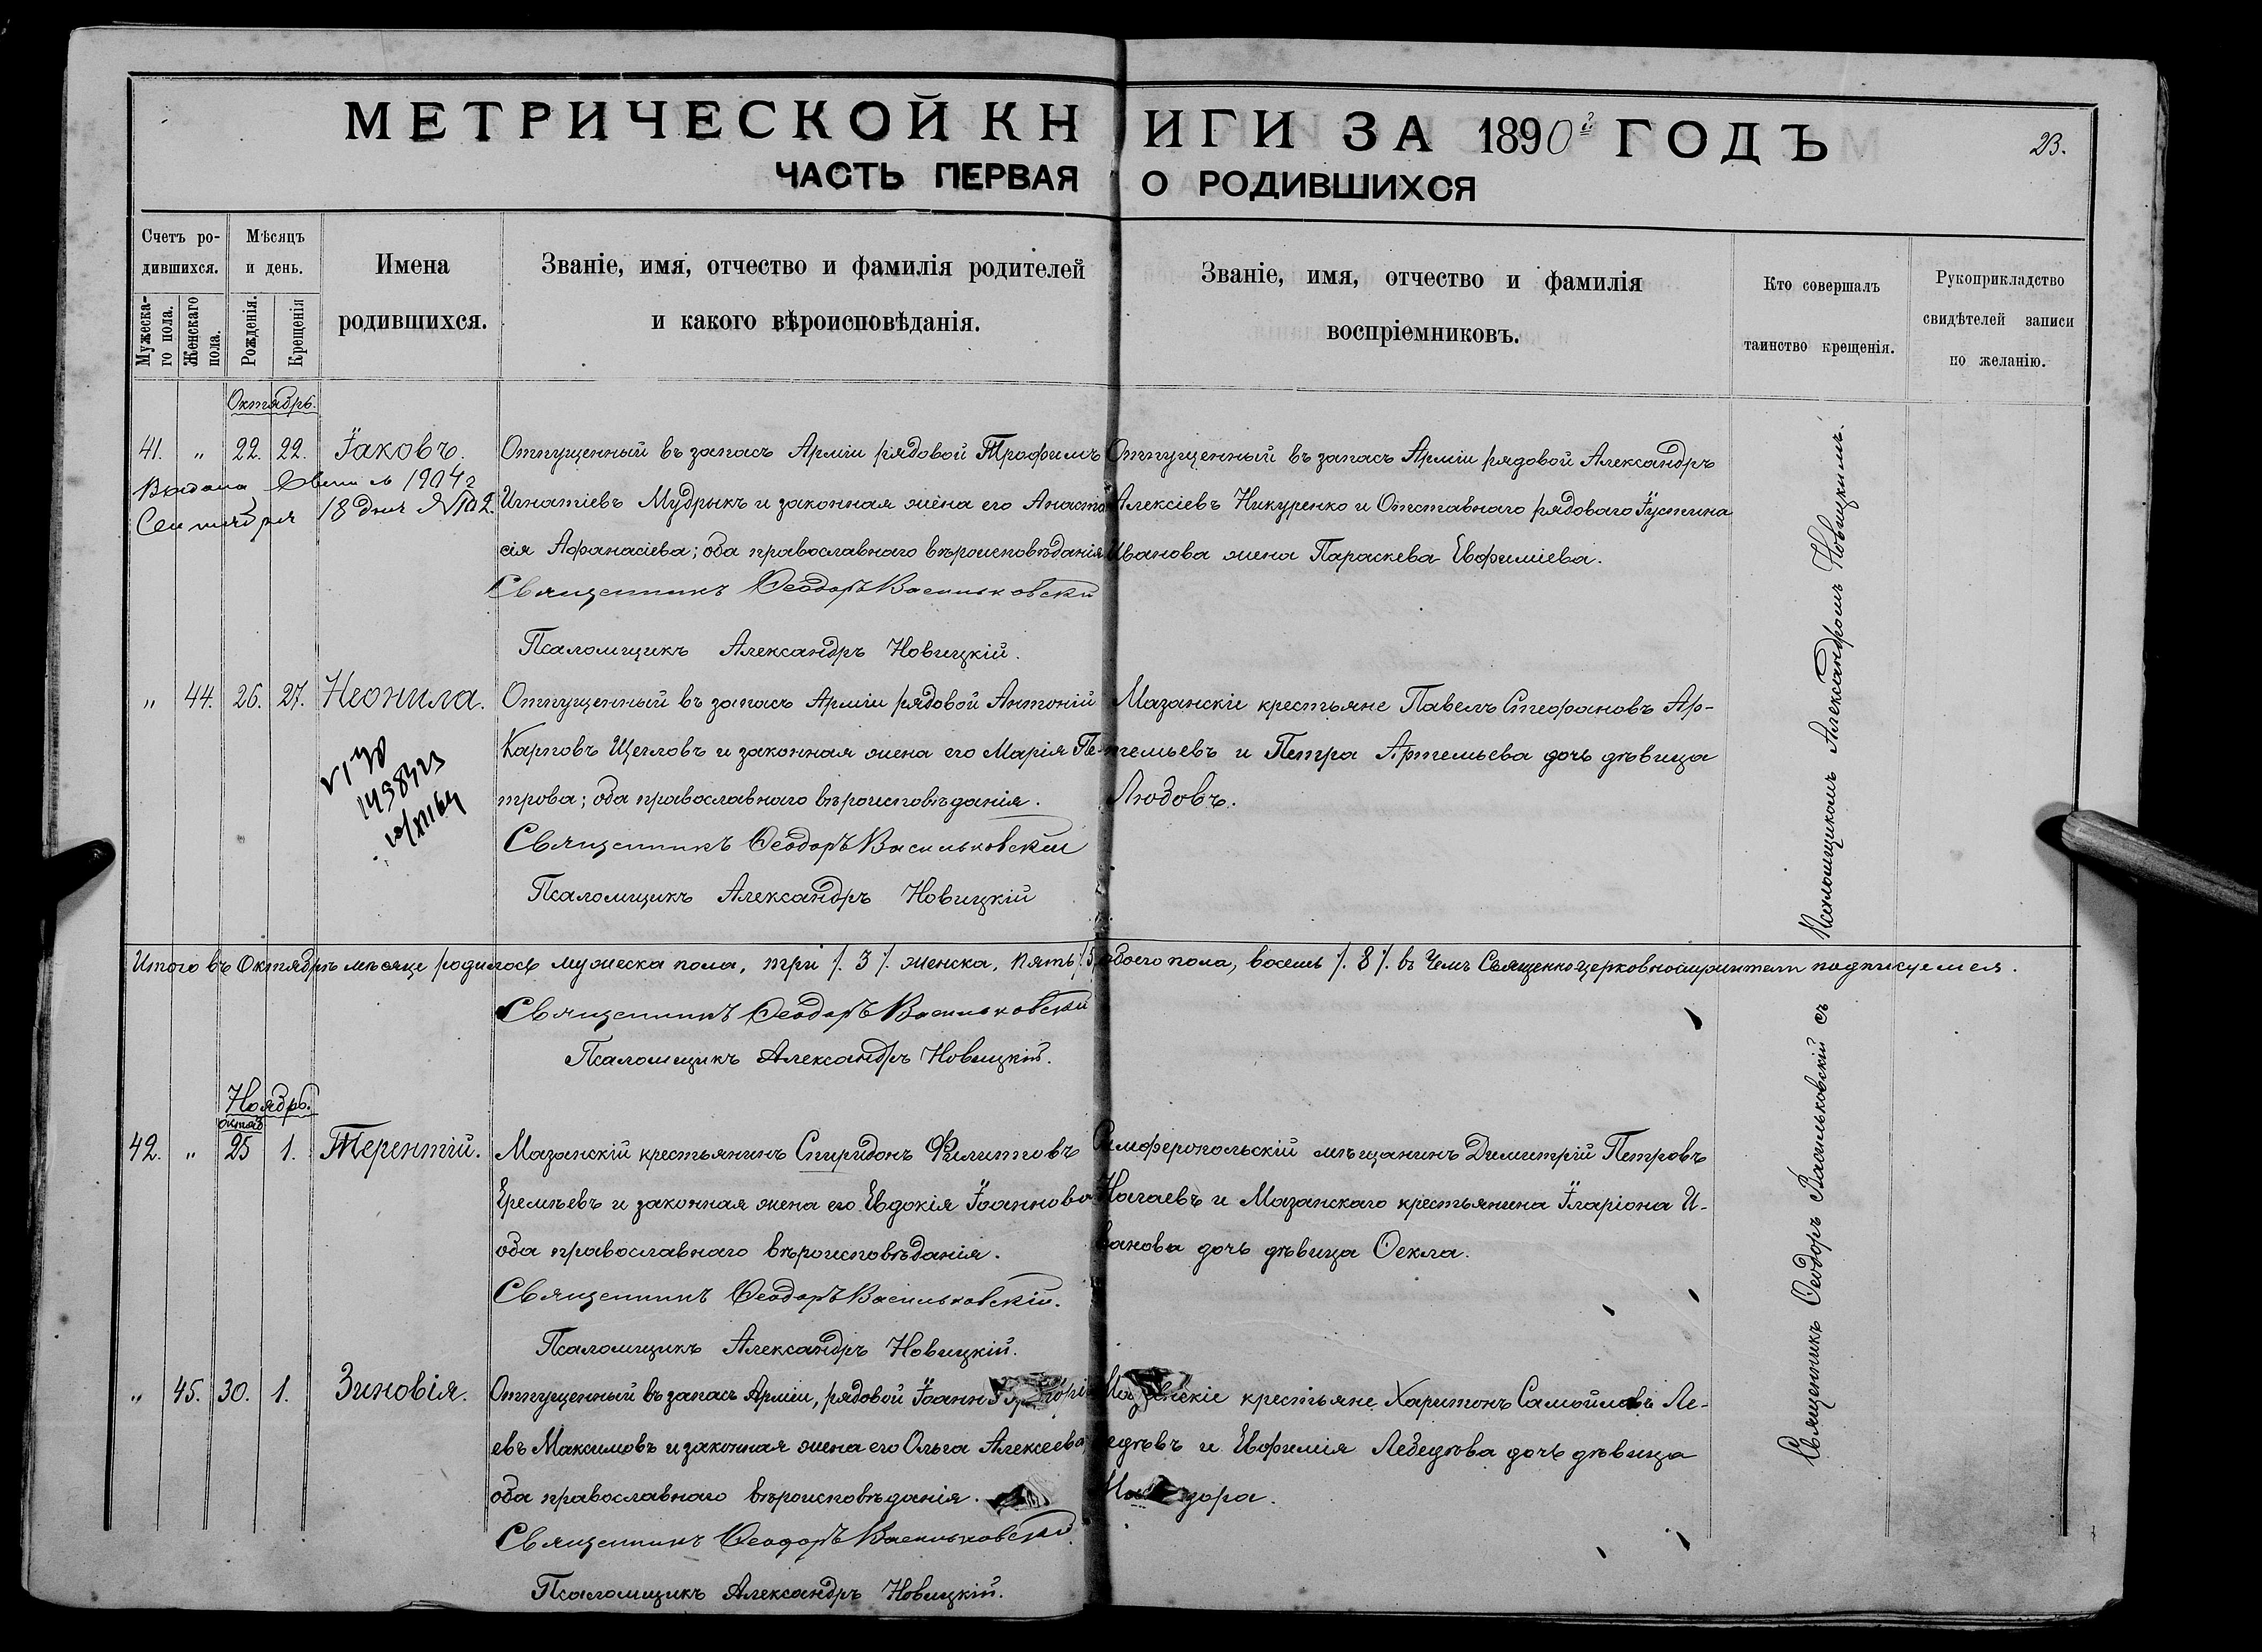 МЕТРИЧЕСКОЙ КНИГИ ЗА 1890й ГОДЪ
23.
ЧАСТЬ ПЕРВАЯ О РОДИВШИХСЯ
Счетъ ро-
дившихся.
Мужеска-
го пола.
Женскаго
пола.
Мѣсяцъ
и день.
Рожденія.
Крещенія
Имена
родившихся.
Званіе, имя, отчество и фамилія родителей
и какого вѣроисповѣданія.
Званіе, имя, отчество и фамилія
воспріемниковъ.
Кто совершалъ
таинство крещенія.
Рукоприкладство
свидѣтелей записи
по желанію.
Октябрь.
41. " 22. 22. Іаковъ.
1904 г
Сентября 18 дня №102.
Отпущенный въ запасъ Арміи рядовой Трофимъ
Игнатіевъ Мудрыкъ и законная жена его Анаста
сія Афанасіева; оба православнаго вѣроисповѣданія
Священникъ Ѳеодоръ Васильковскій
Псаломщикъ Александръ Новицкій.
Отпущенный въ запасъ Арміи рядовой Александръ
Алексіевъ Никуренко и Отставнаго рядоваго Іустина
Иванова жена Параскева Евфиміева.
" 44. 26. 27. Неонила.
Отпущенный въ запасъ Арміи рядовой Антоній
Карповъ Щегловъ и законная жена его Марія Пе-
трова; оба православнаго вѣроисповѣданія.
Священникъ Ѳеодоръ Васильковскій
Псаломщикъ Александръ Новицкій
Мазанскіе крестьяне Павелъ Стефановъ Ар-
темьевъ и Петра Артемьева дочь дѣвица
Любовь.
Итого въ Октябрѣ мѣсяцѣ родилось мужеска пола, три /. 3 /. женска, пять /. 5 обоего пола, восемь /. 8 /. въ чемъ Священноцерковнослужители подписуемся.
Священникъ Ѳеодоръ Васильковскій
Псаломщикъ Александръ Новицкій.
Ноябрь.
октяб
42. " 25 1. Терентій.
Мазанскій крестьянинъ Спиридонъ Филиповъ
Еремѣевъ и законная жена его Евдокія Іоаннова
оба православнаго вѣроисповѣданія.
Священникъ Ѳеодоръ Васильковскій.
Псаломщикъ Александръ Новицкій.
Симферопольскій мѣщанинъ Димитрій Петровъ
Нагаевъ и Мазанскаго крестьянина Іларіона И-
ванова дочь дѣвица Ѳекла.
" 45. 30. 1. Зиновія.
Отпущенный въ запасъ Арміи, рядовой Іоаннъ Григорі
евъ Максимовъ и законная жена его Ольга Алексеева
оба православнаго вѣроисповѣданія.
Священникъ Ѳеодоръ Васильковскій.
Псаломщикъ Александръ Новицкій.
Мазанскіе крестьяне Харитонъ Самойловъ Ле-
бедѣвъ и Евфимія Лебедѣва дочь дѣвица
Священникъ Ѳеодоръ Васильковскій съ Псаломщикомъ Александромъ Новицкимъ.